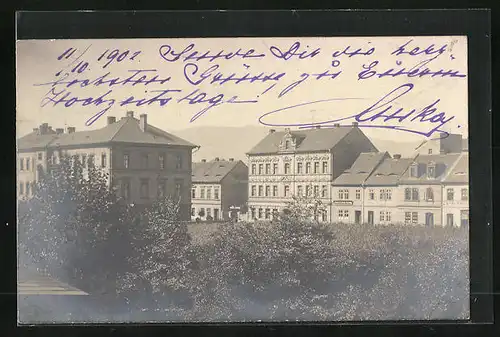 11/10. 1902 Sende Dir die herz-
lichsten Grüsse zu Euerm
Hochzeitstage!